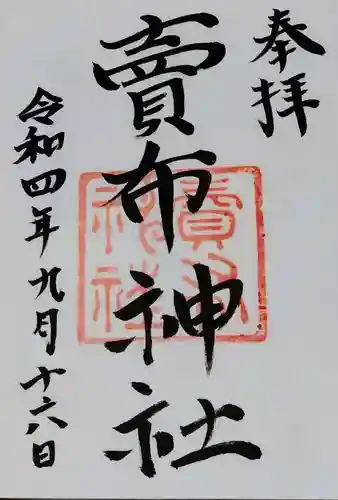 奉拝
賣布神社
令和四年九月十六日
賣布
神社